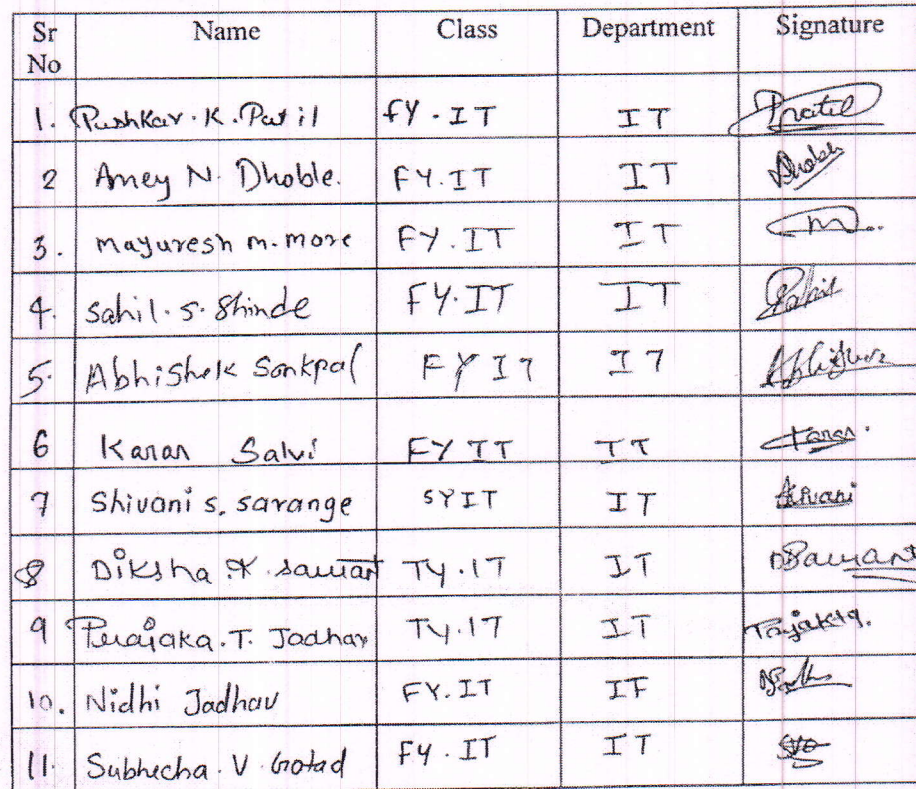 Sr No Name Class Department Signature
1. Pushkar. K. Patil FY. IT IT Patil
2 Amey N. Dhoble. FY. IT IT Dhoble
3. mayuresh m. more FY. IT IT m
4. Sahil. S. Shinde FY. IT IT Sahil
5. Abhishek Sonkpal FY IT IT
6 Karan Salvi FY IT IT Karan.
7 Shivani S. Sarange SYIT IT Shivani
8 Diksha. sawant TY. IT IT DSawant
9 T. Jadhav TY. IT IT
10. Nidhi Jadhav FY. IT IT
11. Subhecha. V. Gotad FY. IT IT SVG